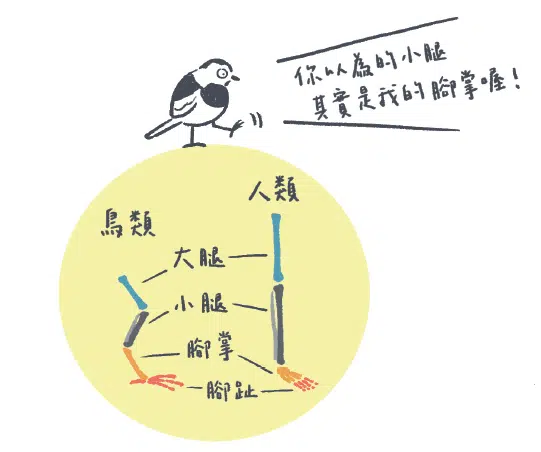 你以為的小腿
其實是我的腳掌喔!
人類
鳥類
大腿
小腿
腳掌
腳趾